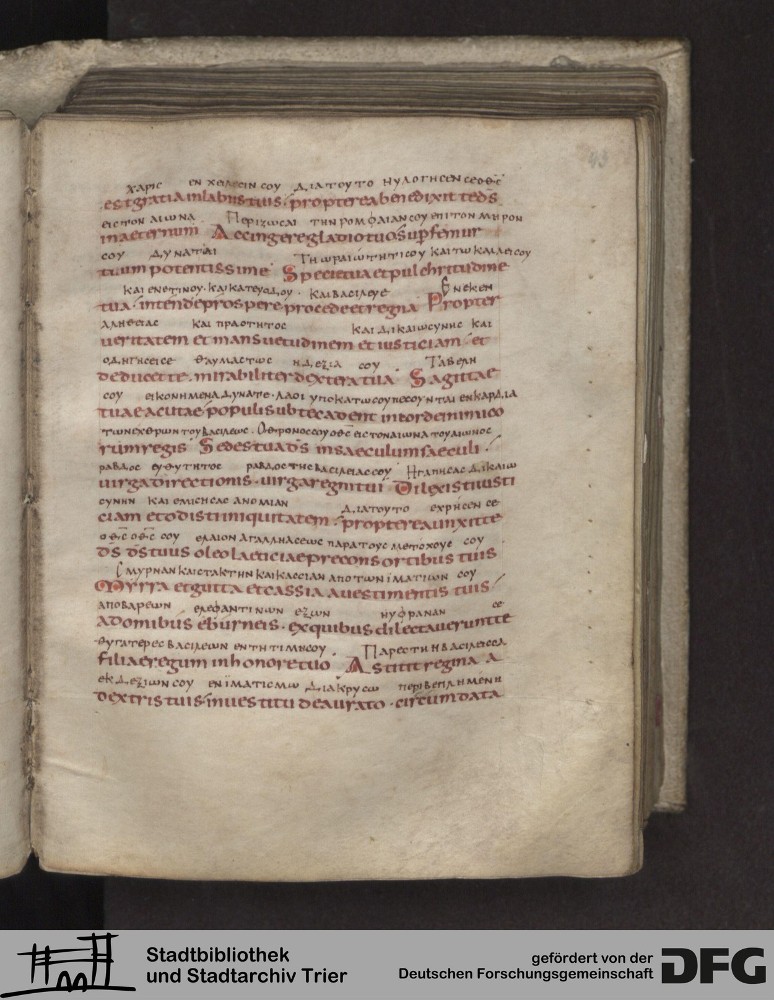 43
χαρις εν χειλεσιν σου διατουτο ηυλογησεν σε ο θς
est gratia in labiis tuis · propterea benedixit te ds
εις τον αιωνα · Περιζωσαι την ρομφαιαν σου επι τον μηρον
in aeternum Accingere gladio tuo sup femur
σου δυνατε
tuum potentissime Specie tua et pulchritudine
και εντινου · και κατευοδου · και βασιλευε Ενεκεν
tua · intende prospere procede et regna Propter
αληθειας και πραοτητος και δικαιωσυνης και
veritatem et mansuetudinem et iusticiam · et
οδηγησει σε θαυμαστως η δεξια σου Τα βελη
deducet te · mirabiliter dextera tua Sagittae
σου
tuae acutae · populi sub te cadent in corde inimico
των εχθρων του βασιλεως · Ο θρονος σου ο θς εις τον αιωνα του αιωνος
rum regis Sedes tua ds in saeculum saeculi ·
ραβδος ευθυτητος ραβδος της βασιλειας σου Ηγαπησας δικαιω
uirga directionis · uirga regni tui · Dilexisti iusti
συνην και εμισησας ανομιαν διατουτο εχρισεν σε
ciam et odisti iniquitatem · propterea unxit te
ο θς ο θς σου ελαιον αγαλλιασεως παρα τους μετοχους σου
ds ds tuus oleo laeticiae pre consortibus tuis
Σμυρναν και στακτην και κασσιαν απο των ιματιων σου
Myrra et gutta et cassia a uestimentis tuis
απο βαρεων ελεφαντινων εξ ων ηυφραναν σε
a domibus eburneis · ex quibus dilectauerunt te
θυγατερες βασιλεων εν τη τιμη σου · Παρεστη η βασιλισσα
filiae regum in honore tuo · Astitit regina a
εκ δεξιων σου εν ιματισμω διακρυσω περιβεπλημενη
dextris tuis · in uestitu deaurato · circumdata
Stadtbibliothek
und Stadtarchiv Trier
gefördert von der
Deutschen Forschungsgemeinschaft
DFG